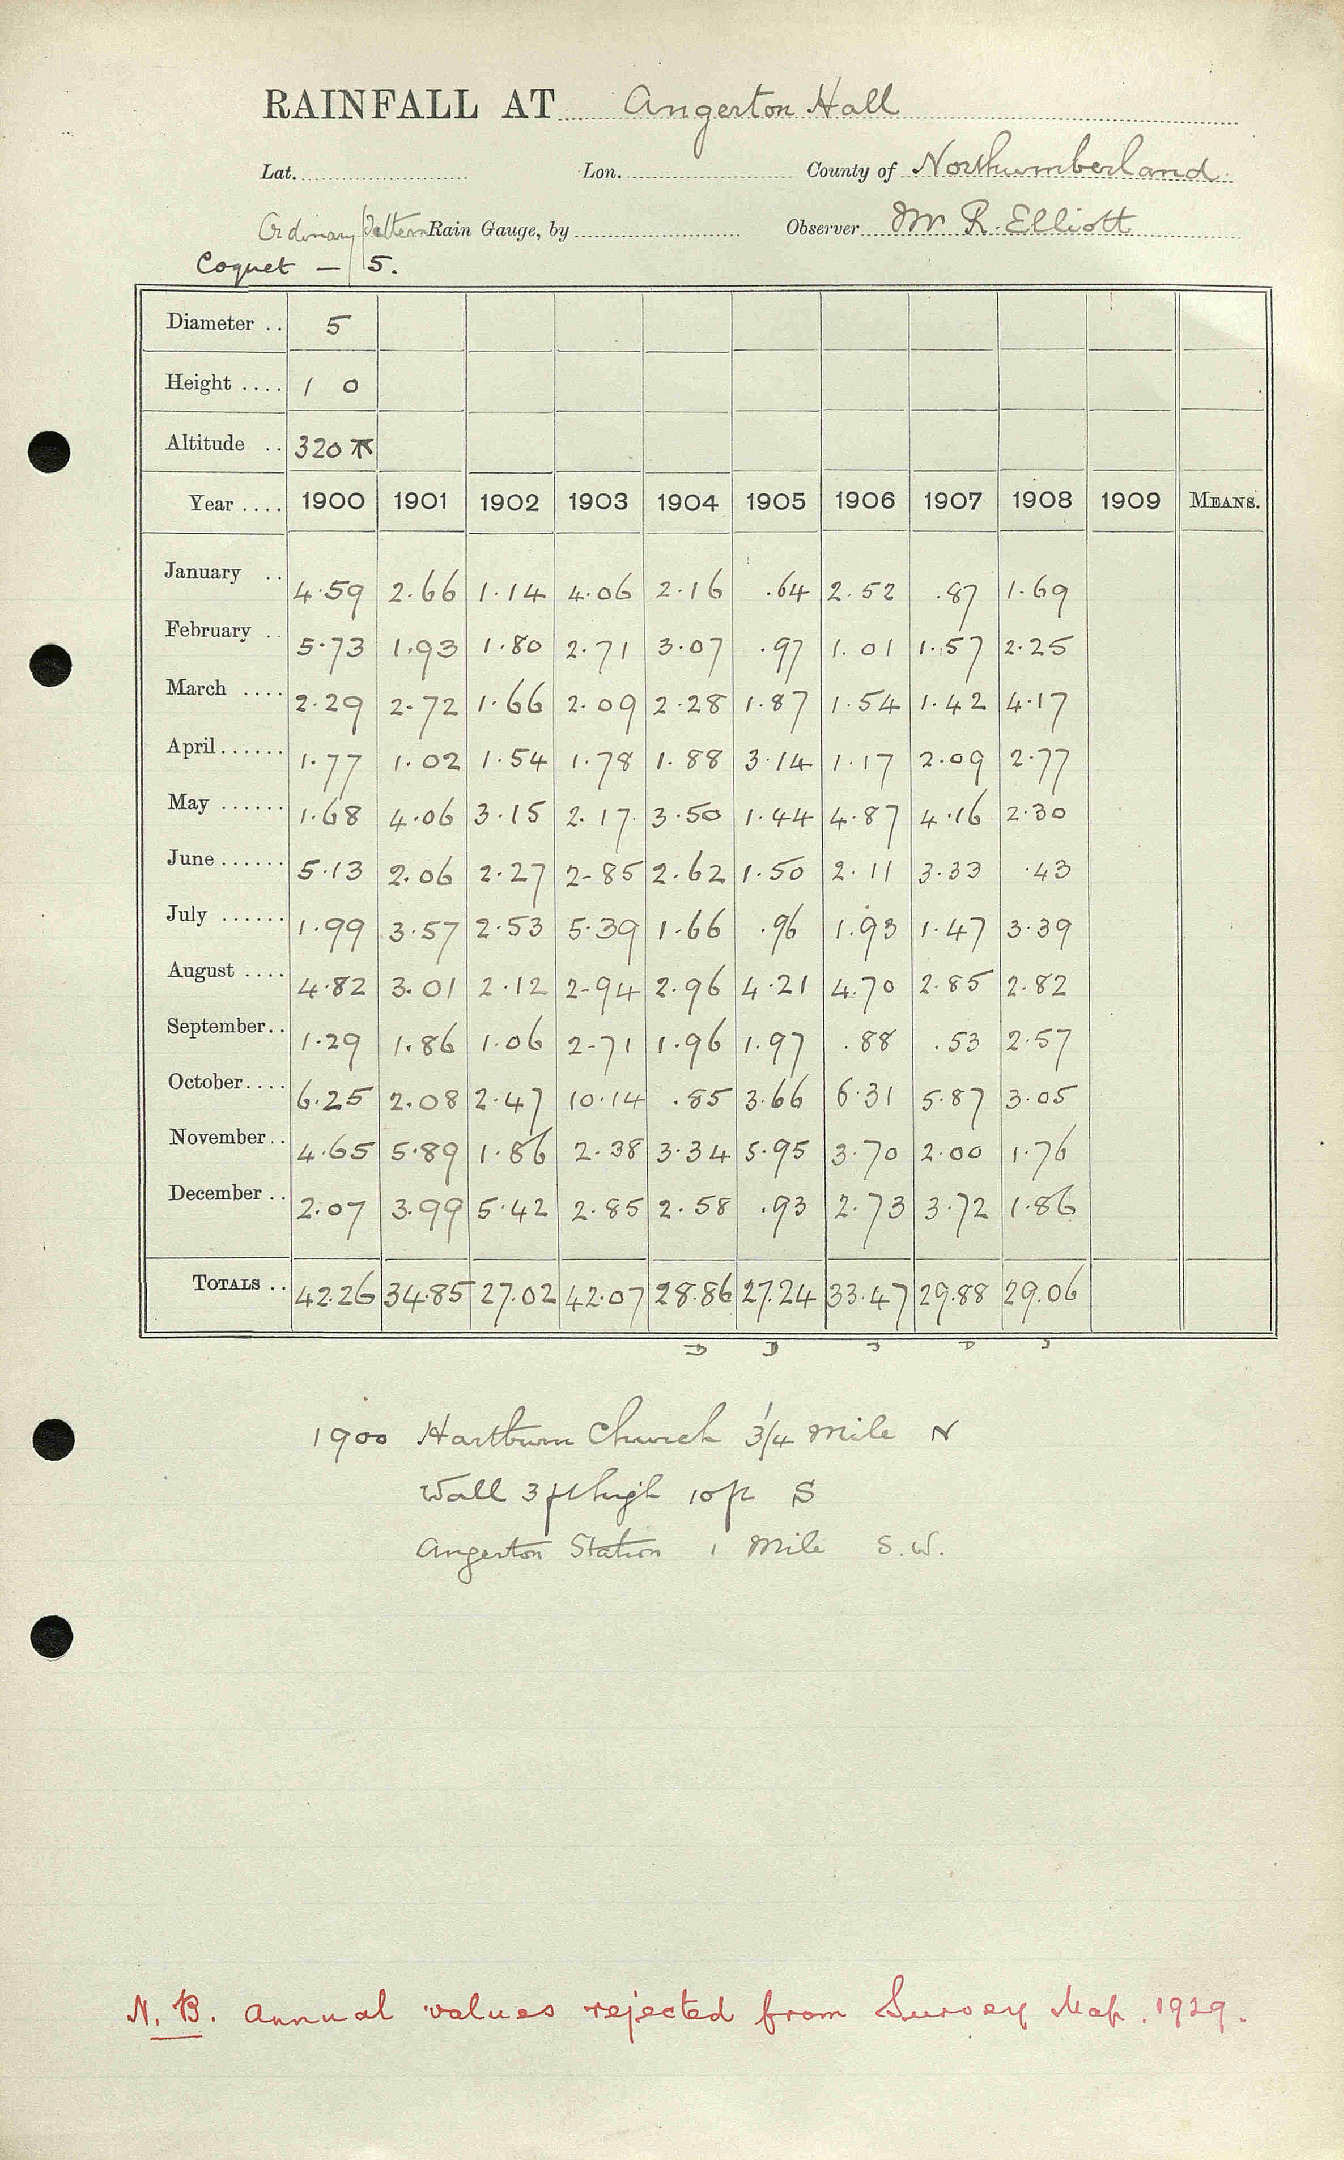 RAINFALL AT Angerton Hall
Lat. Lon. County of Northumberland
Ordinary Pattern Rain Gauge, by Observer Mr R. Elliott
Coquet — 5.
Diameter .. 5
Height .... 1 0
Altitude .. 320
Year .... 1900 1901 1902 1903 1904 1905 1906 1907 1908 1909 MEANS.
January .. 4.59 2.66 1.14 4.06 2.16 .64 2.52 .87 1.69
February .. 5.73 1.93 1.80 2.71 3.07 .97 1.01 1.57 2.25
March .... 2.29 2.72 1.66 2.09 2.28 1.87 1.54 1.42 4.17
April...... 1.77 1.02 1.54 1.78 1.88 3.14 1.17 2.09 2.77
May ...... 1.68 4.06 3.15 2.17 3.50 1.44 4.87 4.16 2.30
June...... 5.13 2.06 2.27 2.85 2.62 1.50 2.11 3.33 .43
July ...... 1.99 3.57 2.53 5.39 1.66 .96 1.93 1.47 3.39
August .... 4.82 3.01 2.12 2.94 2.96 4.21 4.70 2.85 2.82
September.. 1.29 1.86 1.06 2.71 1.96 1.97 .88 .53 2.57
October.... 6.25 2.08 2.47 10.14 .85 3.66 6.31 5.87 3.05
November.. 4.65 5.89 1.86 2.38 3.34 5.95 3.70 2.00 1.76
December .. 2.07 3.99 5.42 2.85 2.58 .93 2.73 3.72 1.86
TOTALS .. 42.26 34.85 27.02 42.07 28.86 27.24 33.47 29.88 29.06
1900 Hartburn Church 3/4 Mile N
Wall 3 ft high 10 ft S
Angerton Station 1 Mile S.W.
N.B. Annual values rejected from Survey Map. 1929.